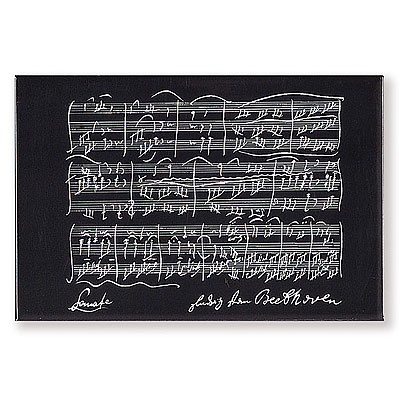 Sonate Ludwig van Beethoven